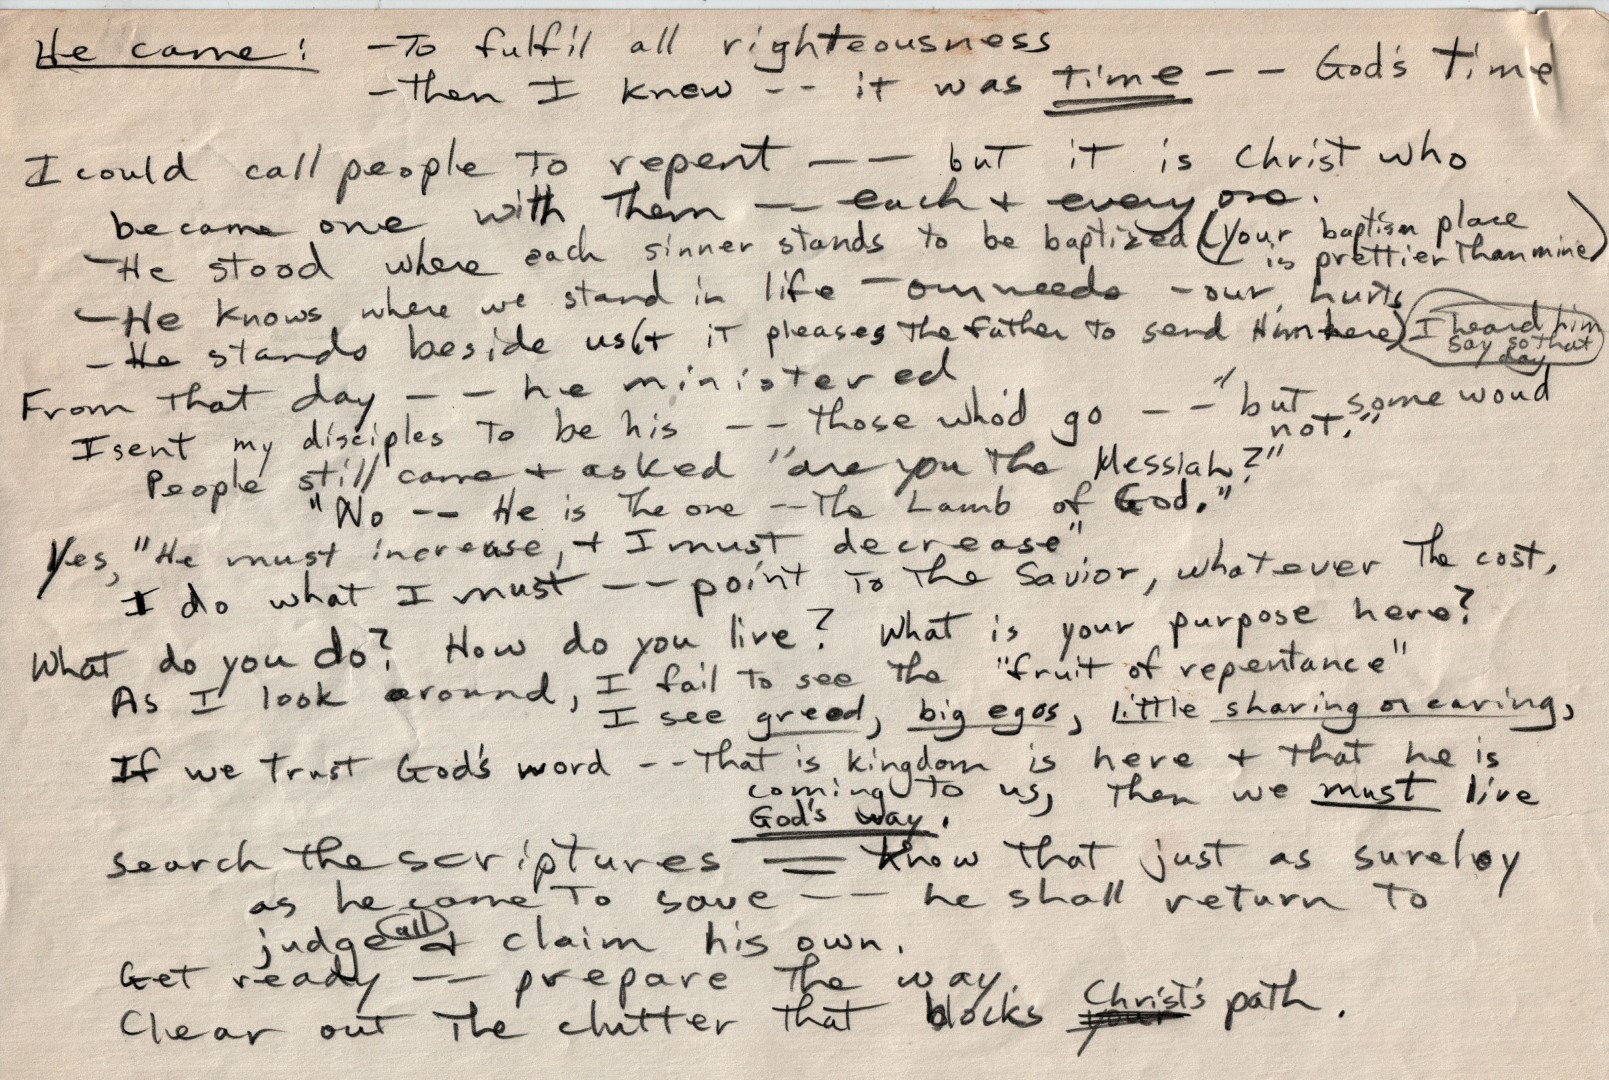 He came! -To fulfil all righteousness
-then I knew -- it was time -- God's time
I could call people to repent -- but it is Christ who
became one with them -- each + every one.
-He stood where each sinner stands to be baptized (your baptism place
is prettier than mine)
-He knows where we stand in life - our needs - our hurts
-He stands beside us (+ it pleases the father to send Him here) I heard him
say so that
day
From that day -- he ministered
I sent my disciples to be his -- those who'd go -- "but some woud
not."
People still came + asked "are you the Messiah?"
"No -- He is the one -- the Lamb of God."
Yes, "He must increase, + I must decrease"
I do what I must -- point to the Savior, whatever the cost.
What do you do? How do you live? What is your purpose here?
As I look around, I fail to see the "fruit of repentance"
I see greed, big egos, little sharing or caring,
If we trust God's word -- that is kingdom is here + that he is
coming to us, then we must live
God's way.
search the scriptures = know that just as sureloy
as he came to save -- he shall return to
judge all + claim his own.
Get ready -- prepare the way.
Clear out the clutter that blocks your Christ's path.